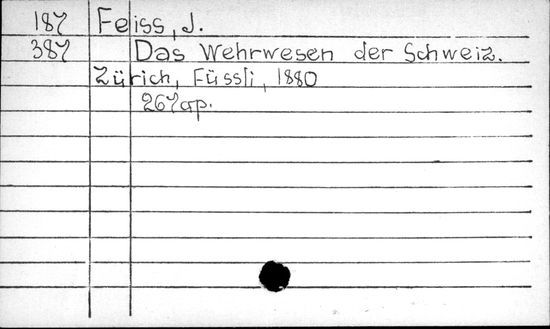 187 Feiss, J.
387 Das Wehrwesen der Schweiz.
Zürich, Füssli, 1880
267 crp.